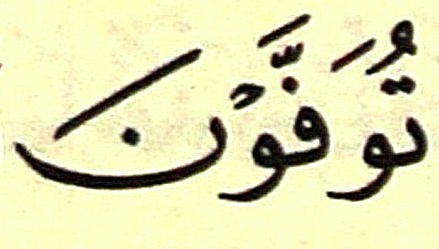 تُوَفَّوْنَ